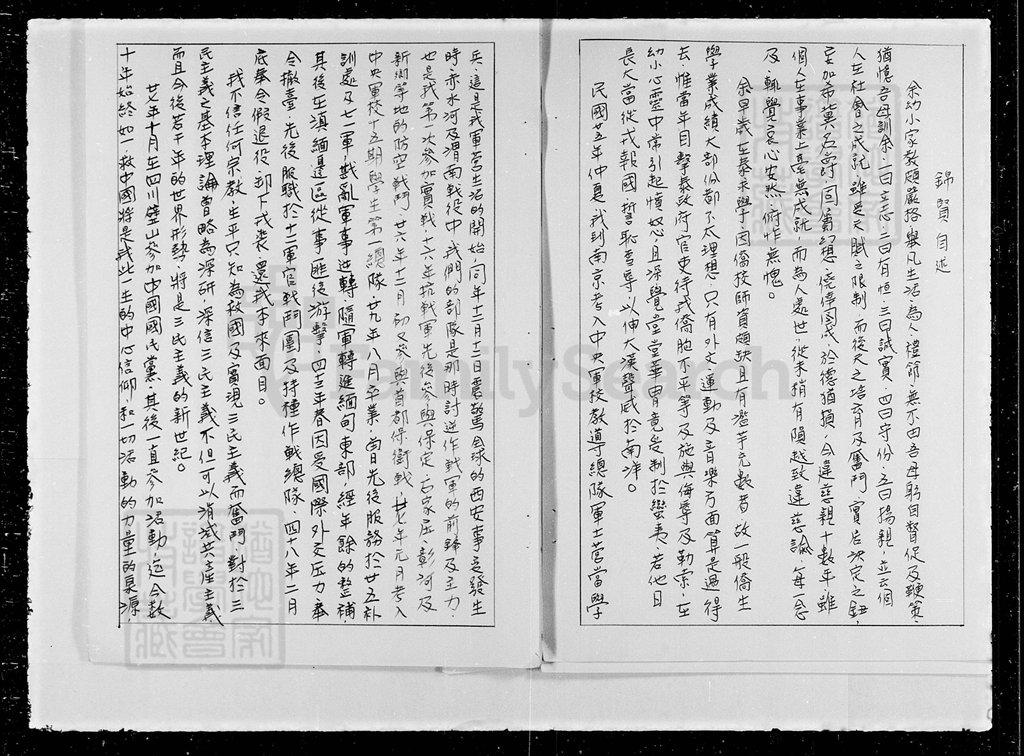 錦賢自述
余幼小家教頗嚴格，舉凡生活為人禮節，無不由吾母躬自督促及鞭策，
猶憶吾母訓余：一曰立志，二曰有恒，三曰誠實，四曰守份，五曰揚親，並云個
人在社會之成就，雖受天賦之限制，而後天之培育及奮鬥，實居決定之鈕，
至加希冀名爵，同屬幻想，僥倖圖成，於德猶損，今違慈親十數年，雖
個人在事業上毫無成就，而為人處世，從未稍有隕越致違慈諭，每一念
及，輒覺良心安然，俯仰無愧。
余早歲在泰求學，因僑校師資頗缺，且有濫竽充數者，故一般僑生
學業成績大部份都不太理想，只有外文、運動及音樂方面算是過得
去，惟當年目擊泰政府官吏待我僑胞不平等及施與侮辱及勒索，在
幼小心靈中常引起憤怒心，且深覺堂堂華胄竟受制於蠻夷，若他日
長大當從戎報國，誓恥辱，以伸大漢聲威於南洋。
民國廿五年仲夏，我到南京考入中央軍校教導總隊軍士營當學
兵，這是我軍營生活的開始，同年十二月十二日震驚全球的西安事變發生
時，赤水河及渭南戰役中，我們的部隊是那時討逆作戰軍的前鋒及主力，
也是我第一次參加實戰，廿六年抗戰軍興先後參與保定、石家庄、彰河及
新鄉等地的防空戰鬥，廿六年十二月初又參與首都保衛戰，廿七年元月考入
中央軍校十五期學生第一總隊，廿九年八月卒業，當日先後服務於廿五補
訓處及七一軍，戡亂軍事逆轉，隨軍轉進緬甸東部，經年餘的整補，
其後在滇緬邊區從事匪後游擊，四三年春因受國際外交压力，奉
令撤臺，先後服職於十二軍官戰鬥團及特種作戰總隊，四十八年二月
底奉令假退役，卸下戎裝，還我本來面目。
我不信任何宗教，生平只知為救國及實現三民主義而奮鬥，對於三
民主義之基本理論曾略為深研，深信三民主義不但可以消滅共產主義
而且今後若干年的世界形勢，將是三民主義的新世紀。
廿七年十月在四川璧山參加中國國民黨，其後一直參加活動，迄今數
十年始終如一，救中國將是我此一生的中心信仰，和一切活動的力量的泉源，
FamilySearch